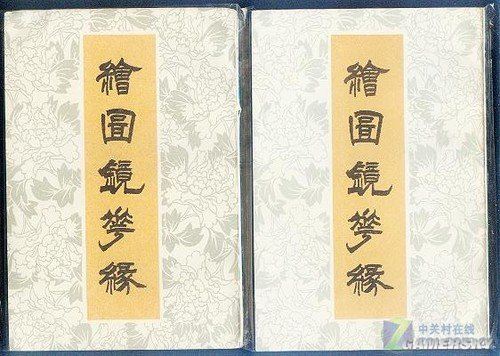 繪圖鏡花緣
繪圖鏡花緣
中关村在线